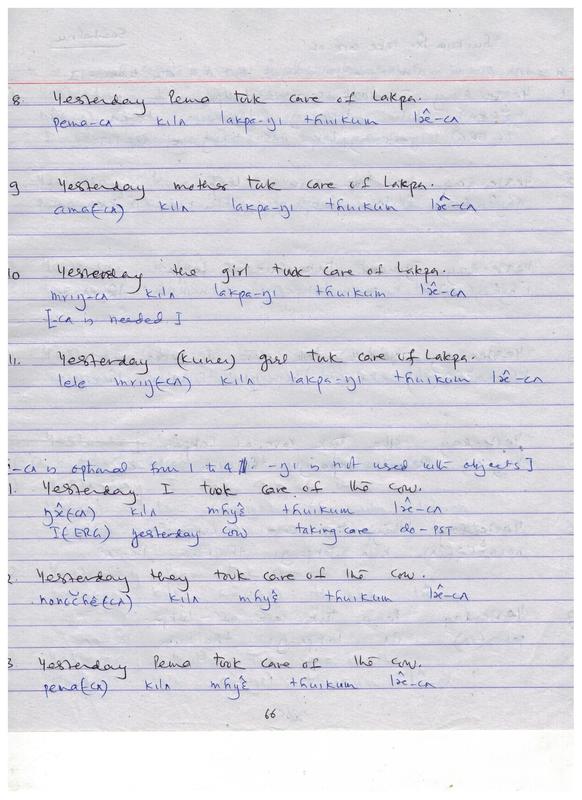 8. Yesterday Pema took care of Lakpa.
pema-cʌ kilʌ lakpa-ŋi thuikum lx̂-cʌ
9 Yesterday mother took care of Lakpa.
ama(-cʌ) kilʌ lakpa-ŋi thuikum lx̂-cʌ
10 Yesterday the girl took care of Lakpa.
mriŋ-cʌ kilʌ lakpa-ŋi thuikum lx̂-cʌ
[-cʌ is needed]
11. Yesterday (kuner) girl took care of Lakpa.
lele mriŋ(-cʌ) kilʌ lakpa-ŋi thuikum lx̂-cʌ
-cʌ is optional from 1 to 4. -ŋi is not used with objects]
1. Yesterday I took care of the cow.
ŋx̂(-cʌ) kilʌ mhyɛ̂ thuikum lx̂-cʌ
I(ERG) yesterday cow taking.care do-PST
2. Yesterday they took care of the cow.
kilʌ mhyɛ̂ thuikum lx̂-cʌ
3 Yesterday Pema took care of the cow.
pema(-cʌ) kilʌ mhyɛ̂ thuikum lx̂-cʌ
66